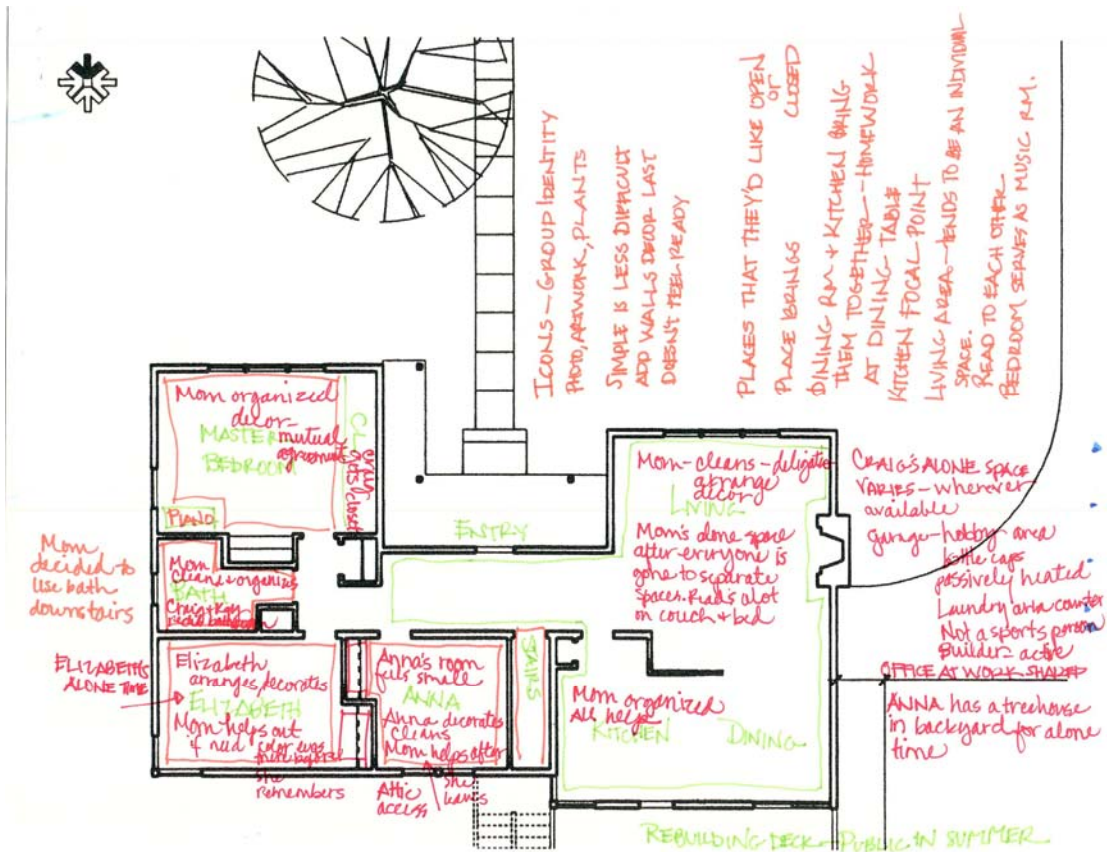 ICONS - GROUP IDENTITY
PHOTO, ARTWORK, PLANTS
SIMPLE IS LESS DIFFICULT
ADD WALLS DECOR LAST
DOESN'T FEEL READY
PLACES THAT THEY'D LIKE OPEN
or
CLOSED
PLACE BRINGS
DINING RM + KITCHEN BRING
THEM TOGETHER - HOMEWORK
AT DINING TABLE
KITCHEN FOCAL POINT
LIVING AREA - TENDS TO BE AN INDIVIDUAL
SPACE.
READ TO EACH OTHER
BEDROOM SERVES AS MUSIC RM.
Mom organized
decor-
mutual
agreement
MASTER
BEDROOM
closet
PIANO
Mom
decided to
use bath
downstairs
Mom
cleans + organizes
BATH
Craig + Kay
ENTRY
Mom - cleans -
arrange
decor
LIVING
Mom's alone space
after everyone is
gone to separate
spaces. Reads alot
on couch + bed
CRAIG'S ALONE SPACE
VARIES - wherever
available
garage - hobby area
bottle caps
passively heated
Laundry area counter
Not a sports person
Builder - active
OFFICE AT WORK SHARED
ANNA has a treehouse
in backyard for alone
time
ELIZABETH'S
ALONE TIME
Elizabeth
arranges, decorates
ELIZABETH
Mom helps out
if need
she
remembers
Anna's room
feels small
ANNA
Anna decorates
cleans
Mom helps after
she
leaves
Attic
access
STAIRS
Mom organized
All help
KITCHEN
DINING
REBUILDING DECK - PUBLIC IN SUMMER